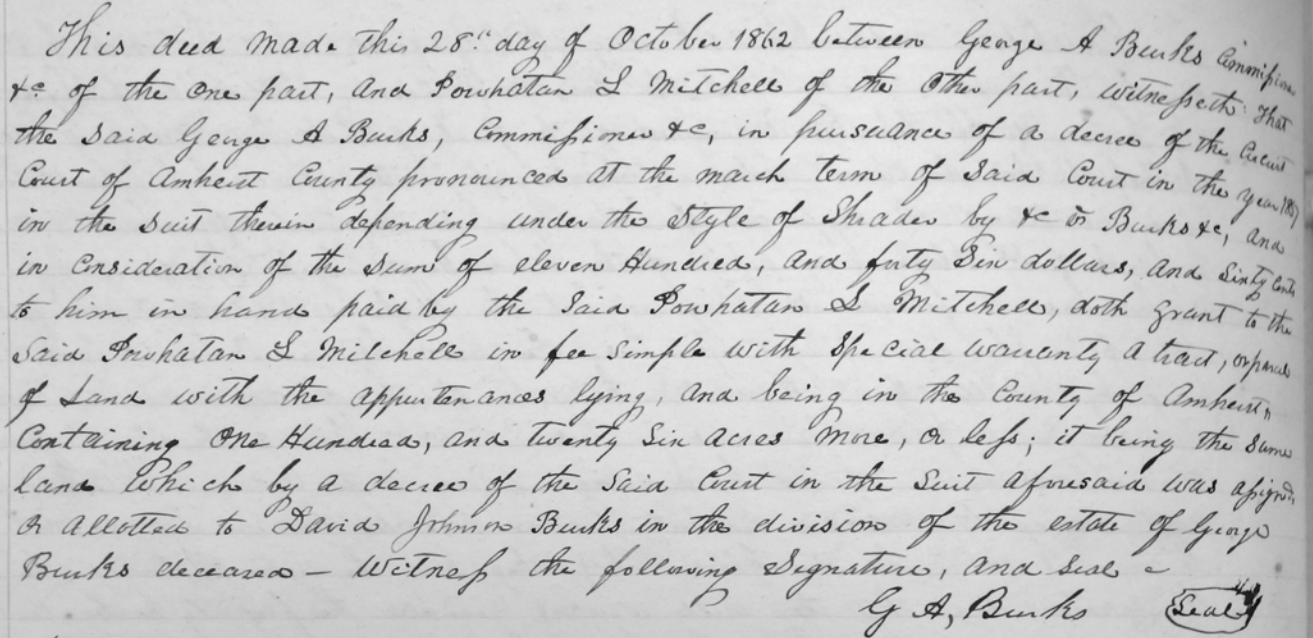 This deed made this 28th day of October 1862 between George A Burks Commissioner
&c of the one part, and Powhatan L Mitchell of the other part, witnesseth: That
the said George A Burks, Commissioner &c, in pursuance of a decree of the Circuit
Court of Amherst County pronounced at the march term of said Court in the year
in the suit therein depending under the style of Shrader by &c vs Burks &c, and
in Consideration of the sum of eleven Hundred, and forty Six dollars, and Sixty Cents
to him in hand paid by the said Powhatan L Mitchell, doth grant to the
said Powhatan L Mitchell in fee simple with special warranty a tract, or parcel
of Land with the appurtenances lying, and being in the County of Amherst,
Containing One Hundred, and twenty Six acres more, or less; it being the same
land which by a decree of the said Court in the Suit aforesaid was assigned,
or allotted to David Johnson Burks in the division of the estate of George
Burks deceased – Witness the following Signature, and seal –
G A, Burks Seal